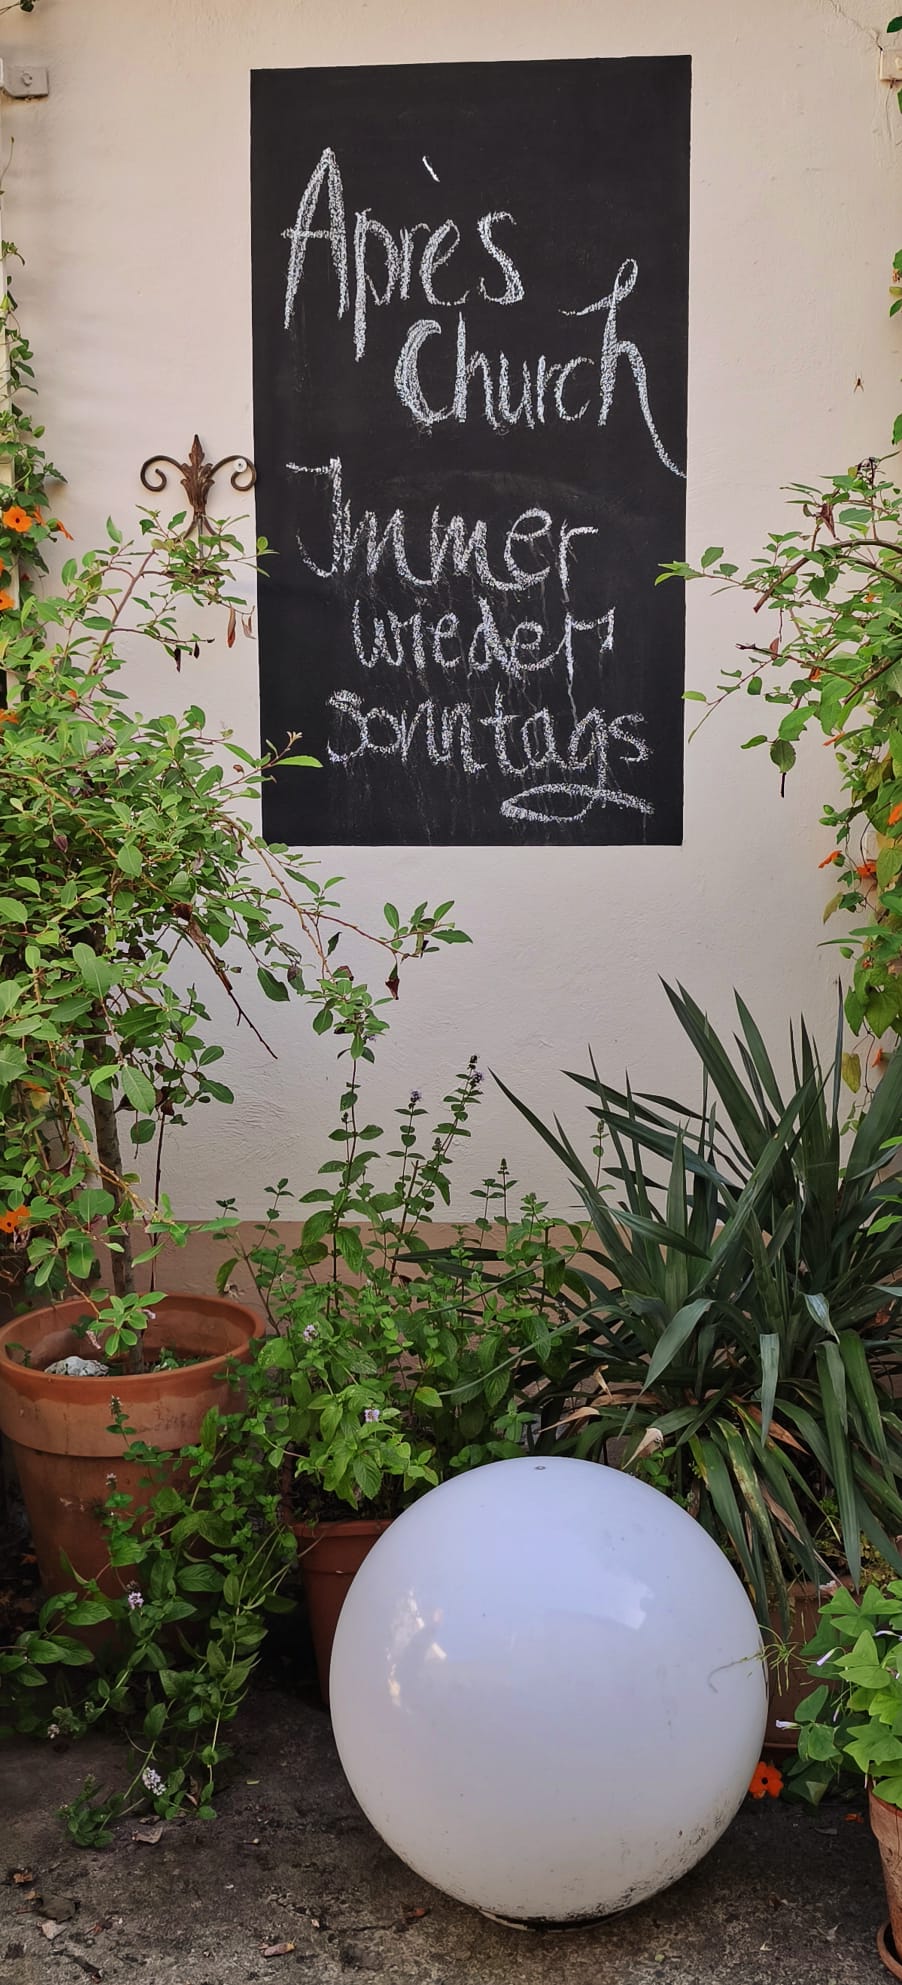 Après
Church
Immer
wieder
Sonntags